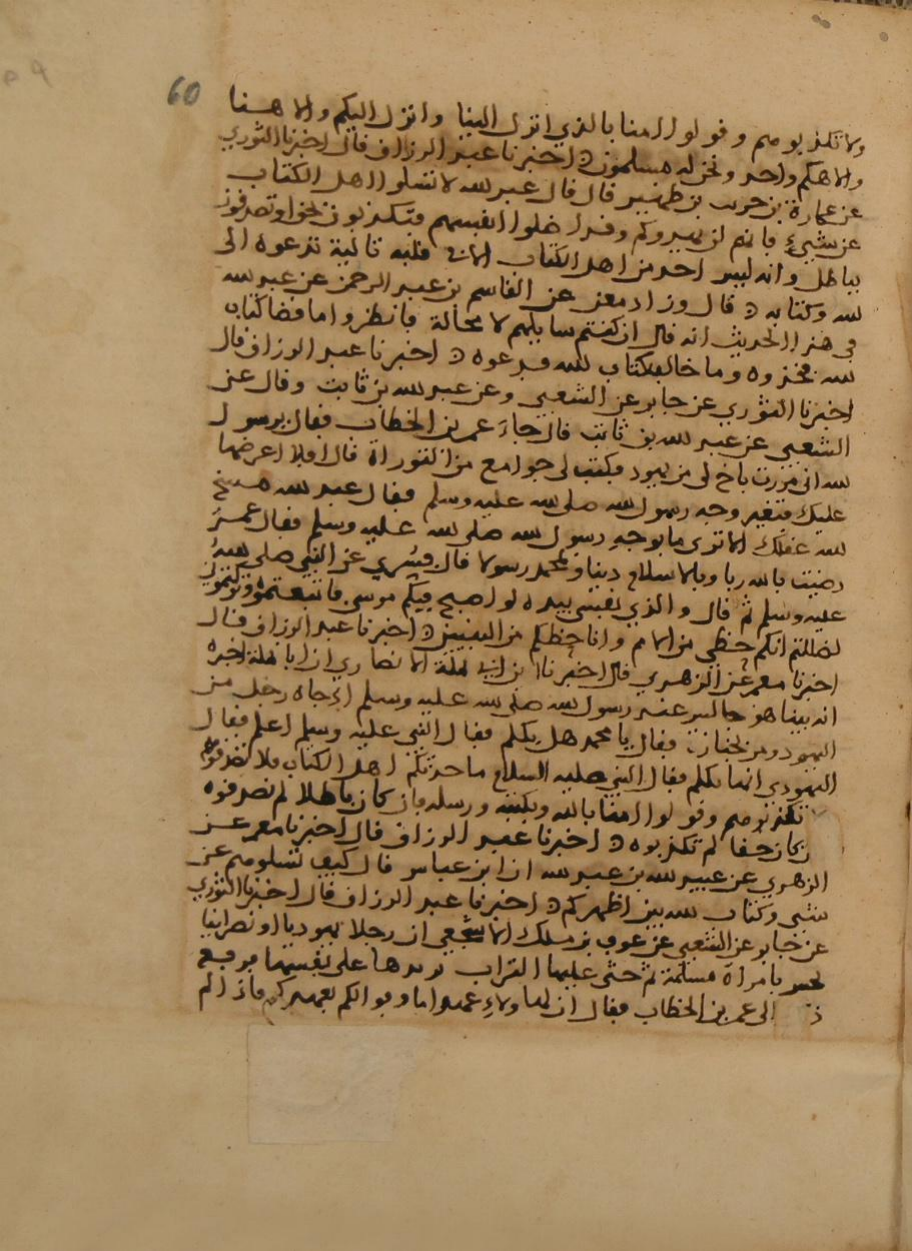 60
ولا تكذبوهم وقولوا امنا بالذي انزل الينا وانزل اليكم والاهنا
والاهكم واحد ونحن له مسلمون اخبرنا عبد الرزاق قال اخبرنا الثوري
عن عمارة بن حريث بن ظهير قال قال عبد لله لا تسلوا اهل الكتاب
عن شيء فانهم لن يهدوكم وقد اضلوا انفسهم فتكذبون بحق او تصدقون
بباطل وانه ليس احد من اهل الكتاب الا في قلبه تالية تدعوه الى
لله وكتابه قال وزاد معن عن القاسم بن عبد الرحمن عن عبد لله
في هذا الحديث انه قال ان كنتم سايليهم لا محالة فانظروا ما قضا كتاب
لله فخذوه وما خالف كتاب لله فدعوه اخبرنا عبد الرزاق قال
اخبرنا الثوري عن جابر عن الشعبي وعن عبد لله بن ثابت وقال عن
الشعبي عن عبد لله بن ثابت قال جاء عمر بن الخطاب فقال يرسول
لله اني مررت باخ لي من يهود فكتب لي جوامع من التوراة قال افلا اعرضها
عليك فتغير وجه رسول لله صلى لله عليه وسلم فقال عبد لله مسخ
لله عقلك الا ترى ما بوجه رسول لله صلى لله عليه وسلم فقال عمر
رضيت بالله ربا وبالاسلام دينا وبمحمد رسولا قال فسري عن النبي صلى لله
عليه وسلم ثم قال والذي نفسي بيده لو اصبح فيكم موسى فاتبعتموه وتركتموني
لضللتم انكم حظي من الامم وانا حظكم من النبيين اخبرنا عبد الرزاق قال
اخبرنا معمر عن الزهري قال اخبرنا ابن ابي نملة الانصاري ان ابا نملة اخبره
انه بينا هو جالس عند رسول لله صلى لله عليه وسلم اذ جاه رجل من
اليهود ومر بجنازة فقال يا محمد هل يكلم فقال النبي عليه وسلم اعلم فقال
اليهودي انها تكلم فقال النبي عليه السلام ما حدثكم اهل الكتاب فلا تصدقوهم
تكذبوهم وقولوا امنا بالله وبكتبه ورسله فان كان باطلا لم تصدقوه
كان حقا لم تكذبوه اخبرنا عبد الرزاق قال اخبرنا معمر عن
الزهري عن عبيد لله بن عبد لله ان ابن عباس قال كيف تسلوهم عن
شي وكتاب لله بين اظهركم اخبرنا عبد الرزاق قال اخبرنا الثوري
عن جابر عن الشعبي عن عوف بن ملك الاشجعي ان رجلا يهوديا او نصرانيا
نخس بامراة مسلمة ثم حثى عليها التراب يريدها على نفسها فرفع
الى عمر بن الخطاب فقال ان لهاولاء عهدا ما وفوا لكم بعهدكم فاذا لم